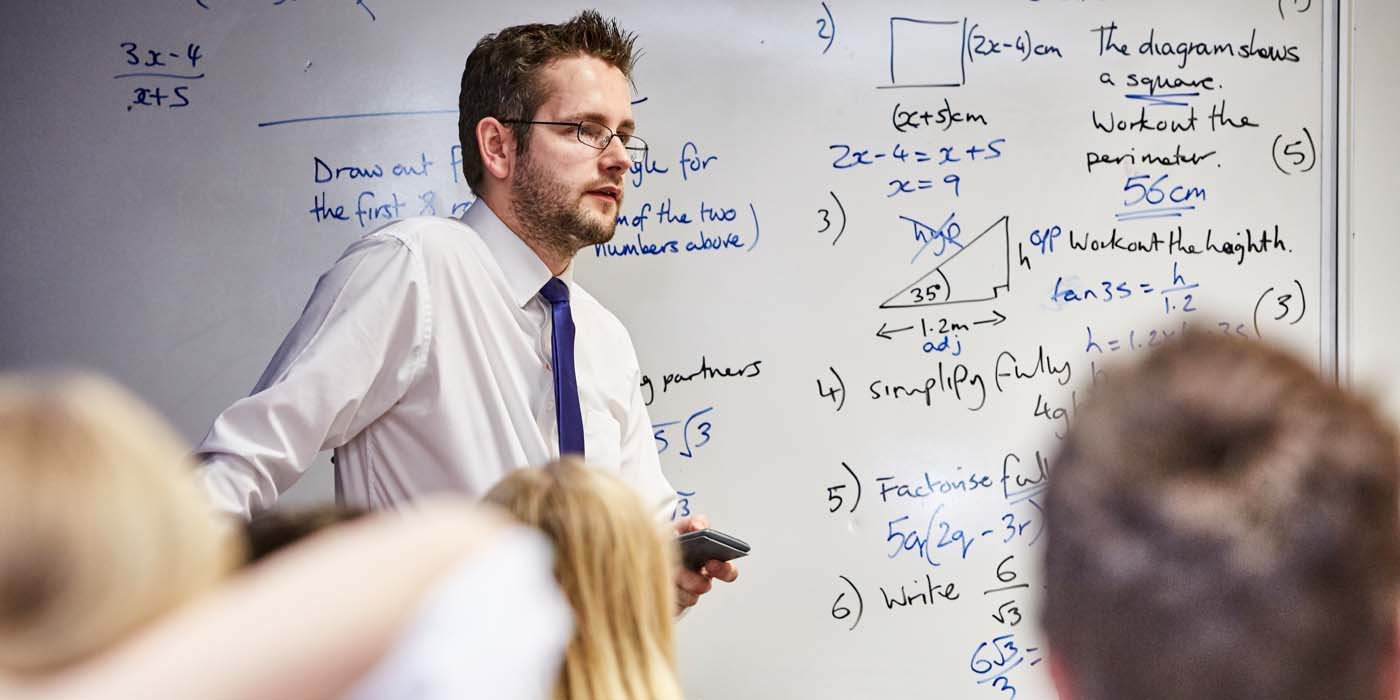 3x-4
x+5
Draw out
gle for
the first 8
of the two
numbers above)
partners
5√3
√3
2) (2x-4)cm The diagram shows
a square.
(x+5)cm Workout the
perimeter. (5)
2x-4=x+5
x=9
56cm
3) hyp h opp Workout the height h.
35°
tan35=h/1.2
1.2m (3)
adj
h=1.2x
4) simplify fully
4g
5) Factorise ful
5q(2q-3r)
6) Write 6/√3
6√3/3=